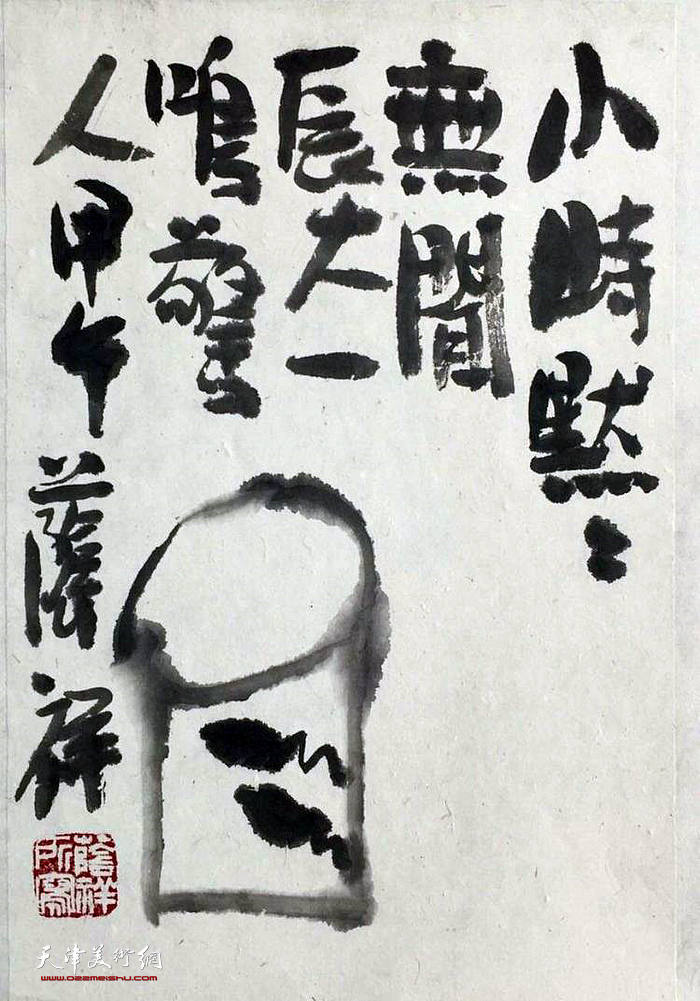 小時默〻
無聞
長大一
鳴驚
人甲午蔭祥
蔭祥
所寫
天津美術網
www.022meishu.com